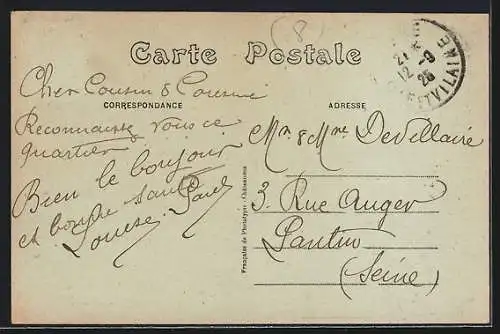 (8)
Carte Postale
21
12 -9
26
ET VILAINE
Cher Cousin & Cousine
CORRESPONDANCE
ADRESSE
Reconnaissez vous ce
quartier
Bien le bonjour
et bonne santé
Louise. Paul
Mr & Mme Devillaire
3. Rue Auger
Pantin
(Seine)
Française de Phototypie, Châteauroux